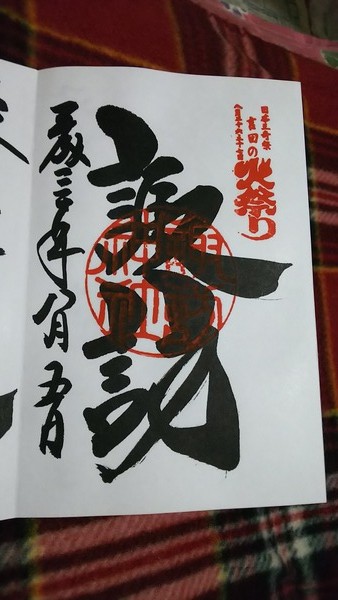 日本三奇祭
吉田の火祭り
八月二十六・二十七日
諏訪
年八月五日